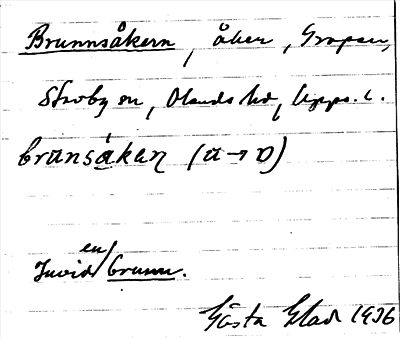 Brunnsåkern, åker, Gropen,
Skoby sn, Olands hd, Upps. l.
brunsåkaṇ (u→ɒ)
Invid en brunn.
Gösta Elad 1936